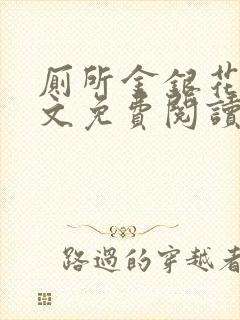 廁所金銀花
文免費閱讀
路過的穿越者